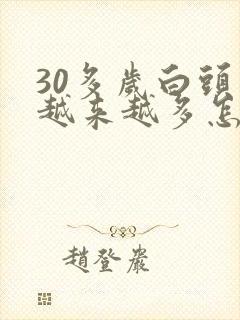 30多歲白頭
越来越多怎
趙登巖